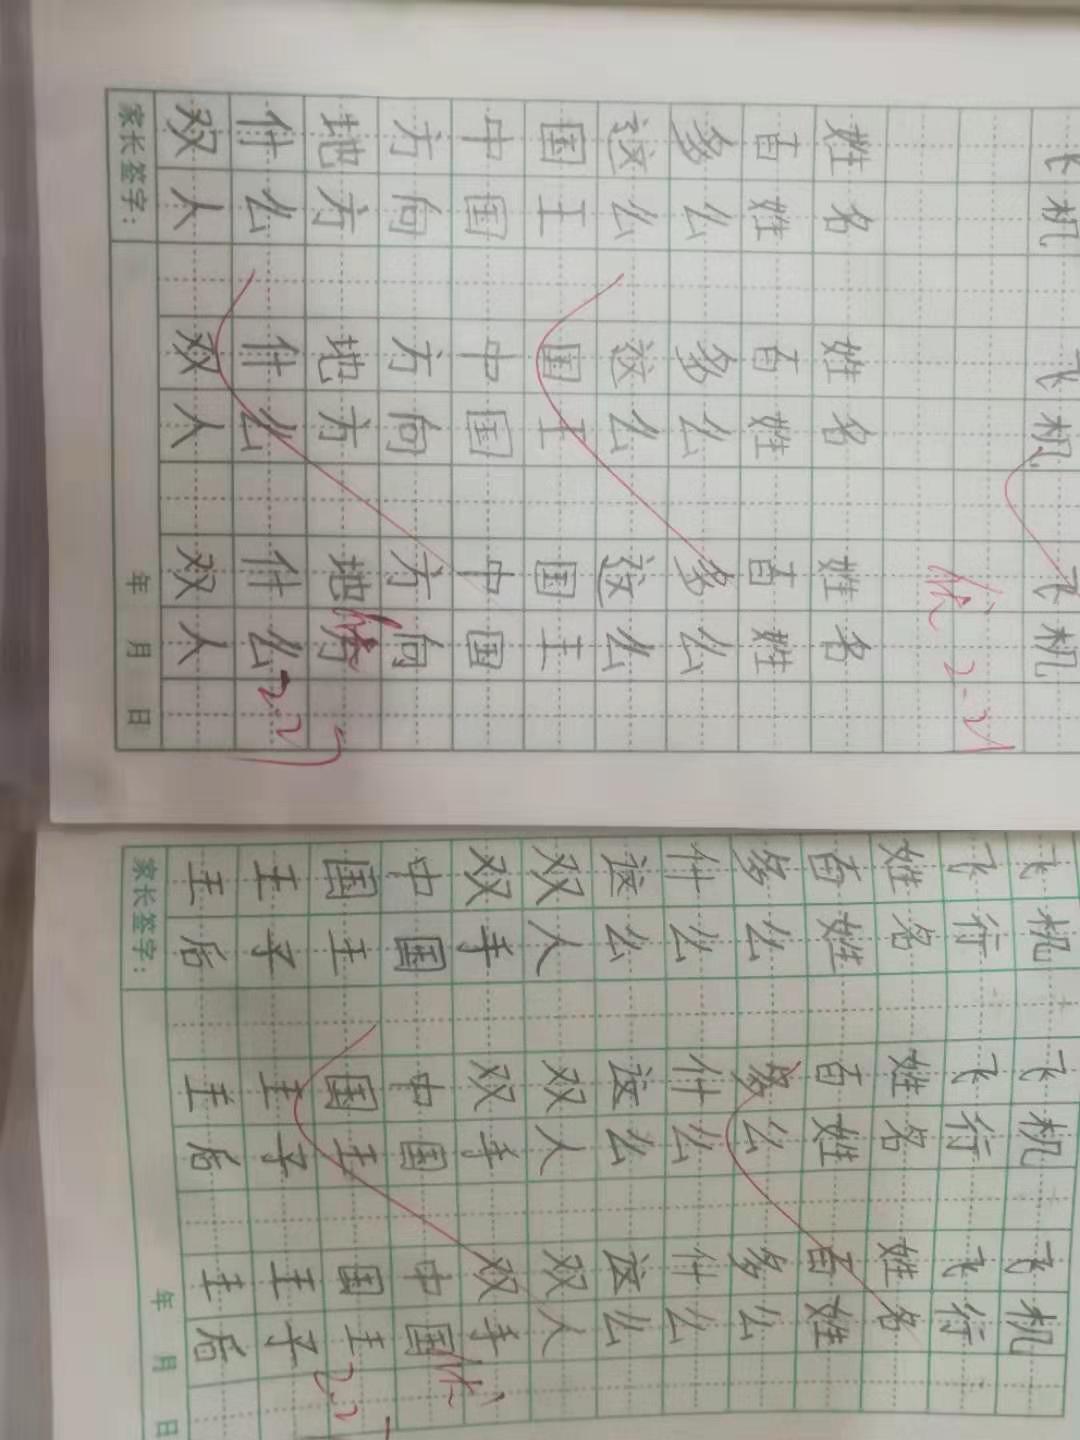 飞机 飞机 飞机
优
姓名 姓名 姓名
百姓 百姓 百姓
多么 多么 多么
这么 这么 这么
国王 国王 国王
中国 中国 中国
方向 方向 方向
地方 地方 地方
什么 什么 什么
双人 双人 双人
家长签字: 年 月 日
飞机 飞机 飞机
飞行 飞行 飞行
姓名 姓名 姓名
百姓 百姓 百姓
多么 多么 多么
什么 什么 什么
这么 这么 这么
双人 双人 双人
双手 双手 双手
中国 中国 中国 优
国王 国王 国王
王子 王子 王子
王后 王后 王后
家长签字: 年 月 日